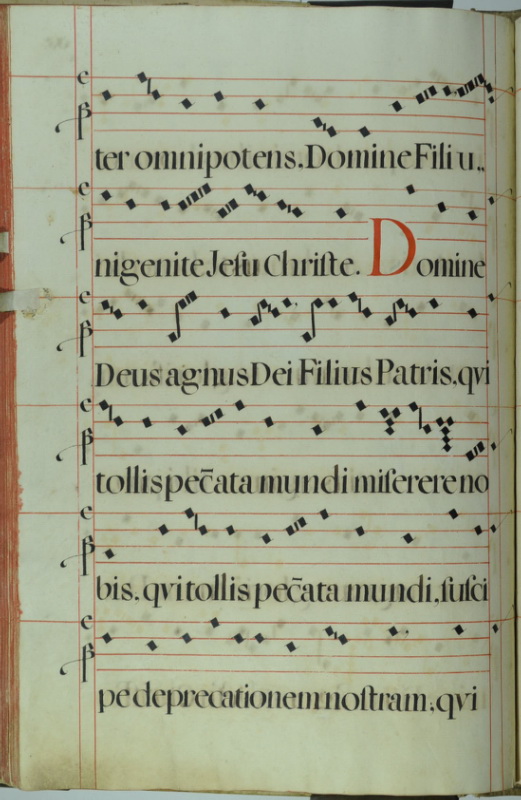 ter omnipotens. Domine Fili u..
nigenite Jesu Chriſte. Domine
Deus agnus Dei Filius Patris. qvi
tollis pec̄ata mundi miſerere no
bis. qvi tollis pec̄ata mundi, ſuſci
pe deprecationem noſtram, qvi